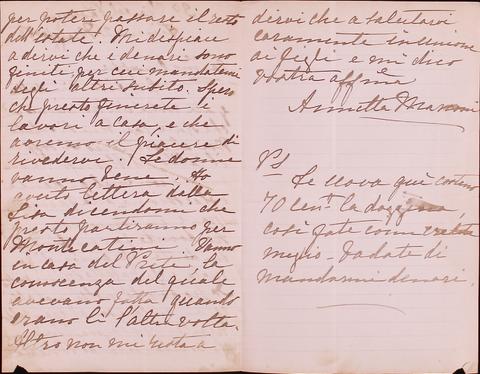 per poter passare il resto
dell'estate. Mi dispiace
a dirvi che i denari sono
finiti per cui mandatemi
degli altri subito. Spero
che presto finirete i
lavori a casa, e che
avremo il piacere di
rivedervi. Le donne
vanno bene. Ho
avuto lettera della
Lisa dicendomi che
presto partiranno per
Montecatini. Vanno
in casa del, la
conoscenza del quale
avevano fatta quando
erano lì l'altra volta.
Altro non mi resta a
dirvi che a salutarvi
caramente in unione
ai figli e mi dico
vostra affma
Annetta
Ps
Le uova quì costano
70 cent. la dozzina,
così fate come credete
meglio. Badate di
mandarmi denari.